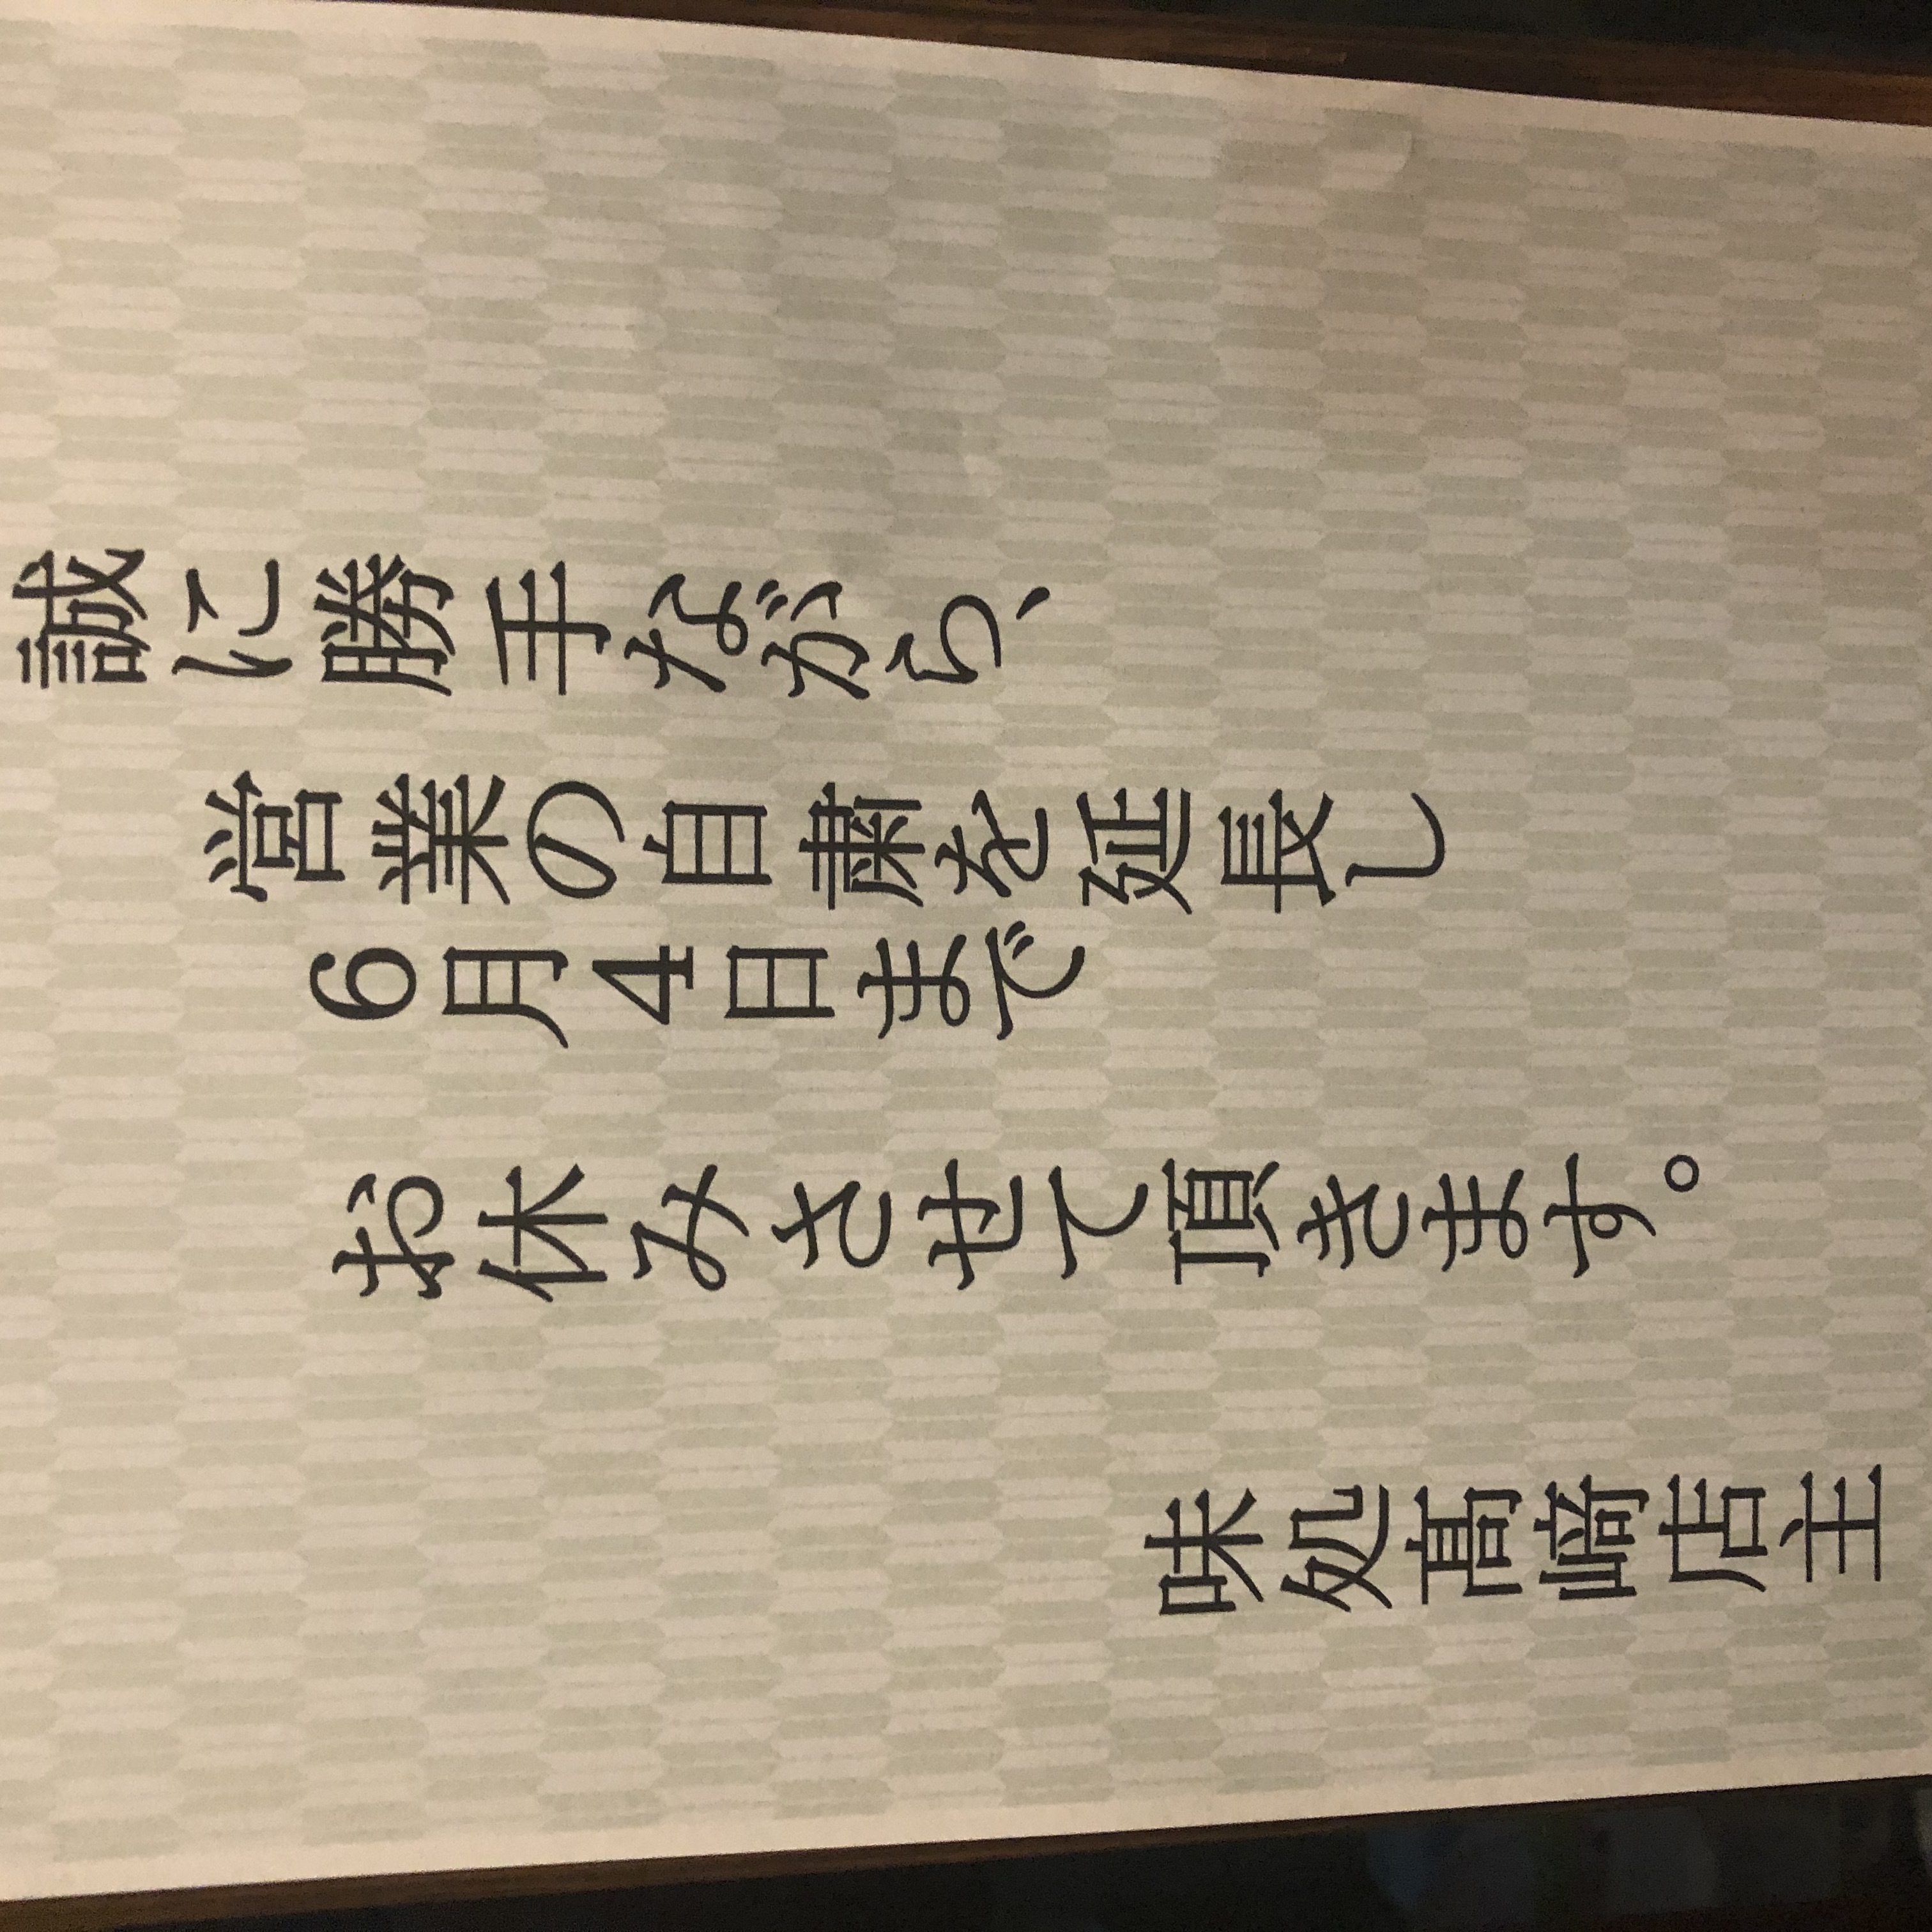 誠に勝手ながら、
営業の自粛を延長し
6月4日まで
お休みさせて頂きます。
味処高崎店主